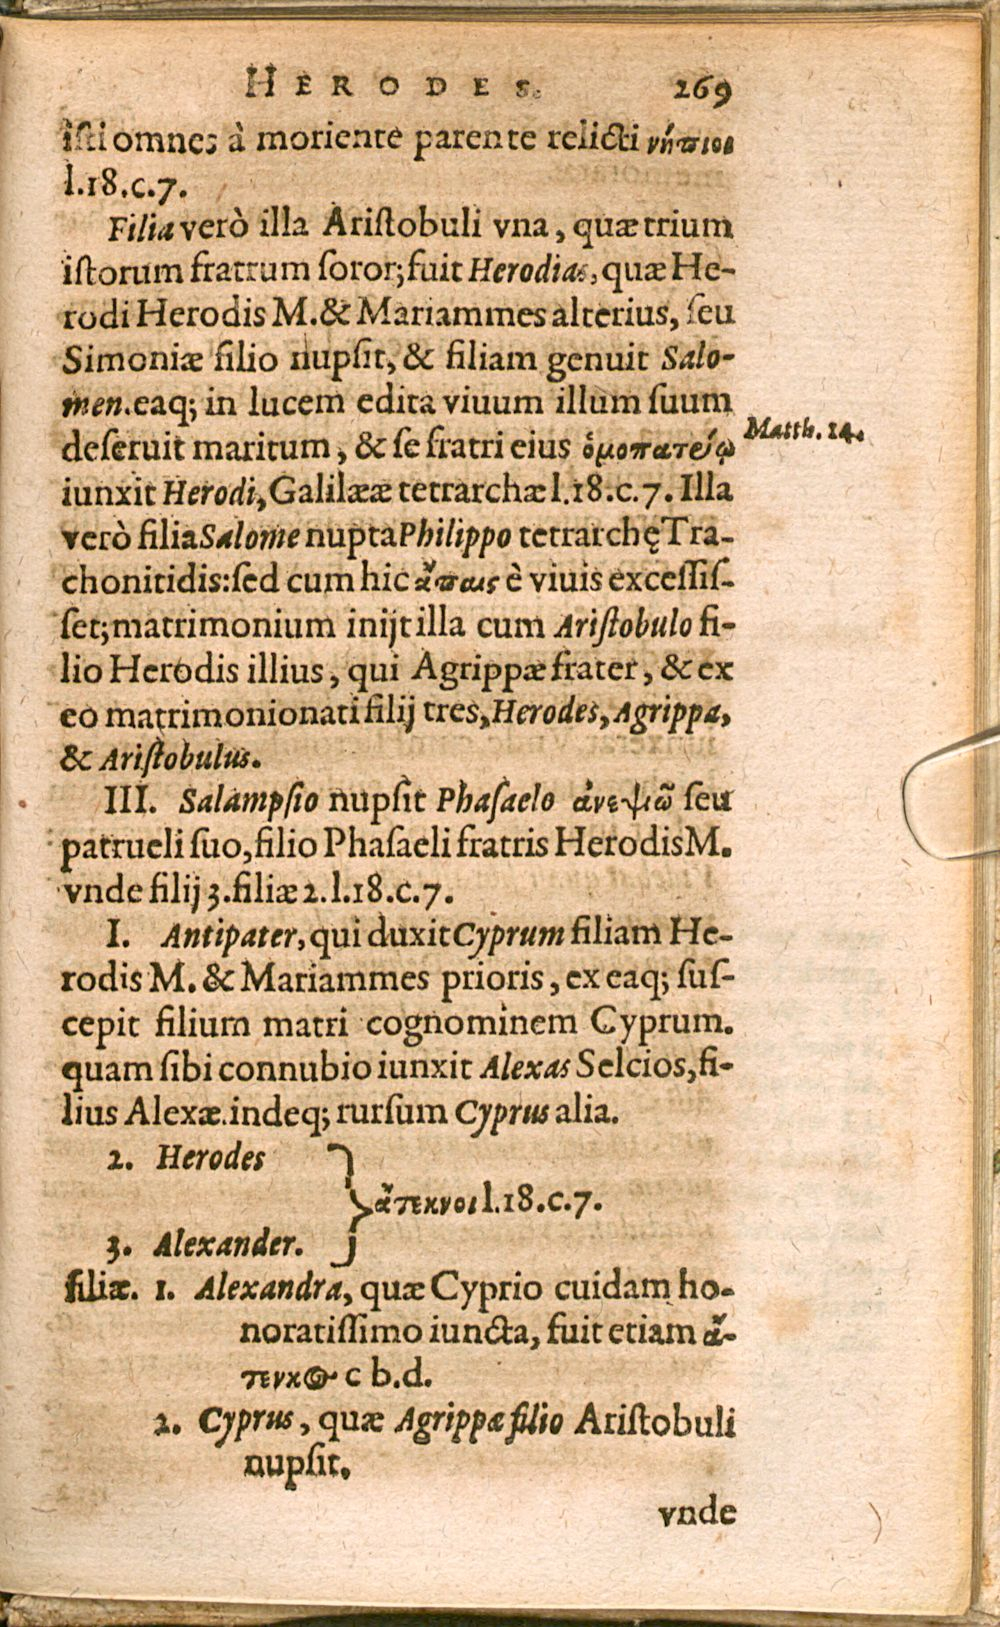 HERODES. 269
iſti omnes à moriente parente relicti νήπιοι
l.18.c.7.
Filia verò illa Ariſtobuli vna, quæ trium
iſtorum fratrum ſoror; fuit Herodias, quæ He-
rodi Herodis M. & Mariammes alterius, ſeu
Simoniæ filio nupſit, & filiam genuit Salo-
men. eaq; in lucem edita viuum illum ſuum
deſeruit maritum, & ſe fratri eius ὁμοπατείῳ
Matth. 14.
iunxit Herodi, Galilææ tetrarchæ l.18.c.7. Illa
verò filia Salome nupta Philippo tetrarchę Tra-
chonitidis: ſed cum hic ἄπαις è viuis exceſſiſ-
ſet; matrimonium inijt illa cum Ariſtobulo fi-
lio Herodis illius, qui Agrippæ frater, & ex
eo matrimonio nati filij tres, Herodes, Agrippa,
& Ariſtobulus.
III. Salampſio nupſit Phaſaelo ἀνεψιῶ ſeu
patrueli ſuo, filio Phaſaeli fratris Herodis M.
vnde filij 3. filiæ 2. l.18.c.7.
I. Antipater, qui duxit Cyprum filiam He-
rodis M. & Mariammes prioris, ex eaq; ſuſ-
cepit filium matri cognominem Cyprum.
quam ſibi connubio iunxit Alexas Selcios, fi-
lius Alexæ. indeq; rurſum Cyprus alia.
2. Herodes
} ἄτεκνοι l.18.c.7.
3. Alexander.
filiæ. 1. Alexandra, quæ Cyprio cuidam ho-
noratiſſimo iuncta, fuit etiam ἄ-
τενκος c b.d.
2. Cyprus, quæ Agrippæ filio Ariſtobuli
nupſit.
vnde